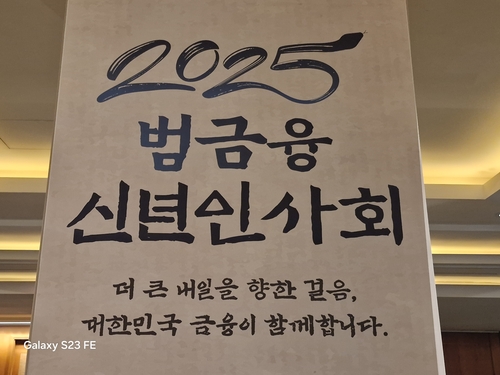 2025
범금융
신년인사회
더 큰 내일을 향한 걸음,
대한민국 금융이 함께합니다.
Galaxy S23 FE